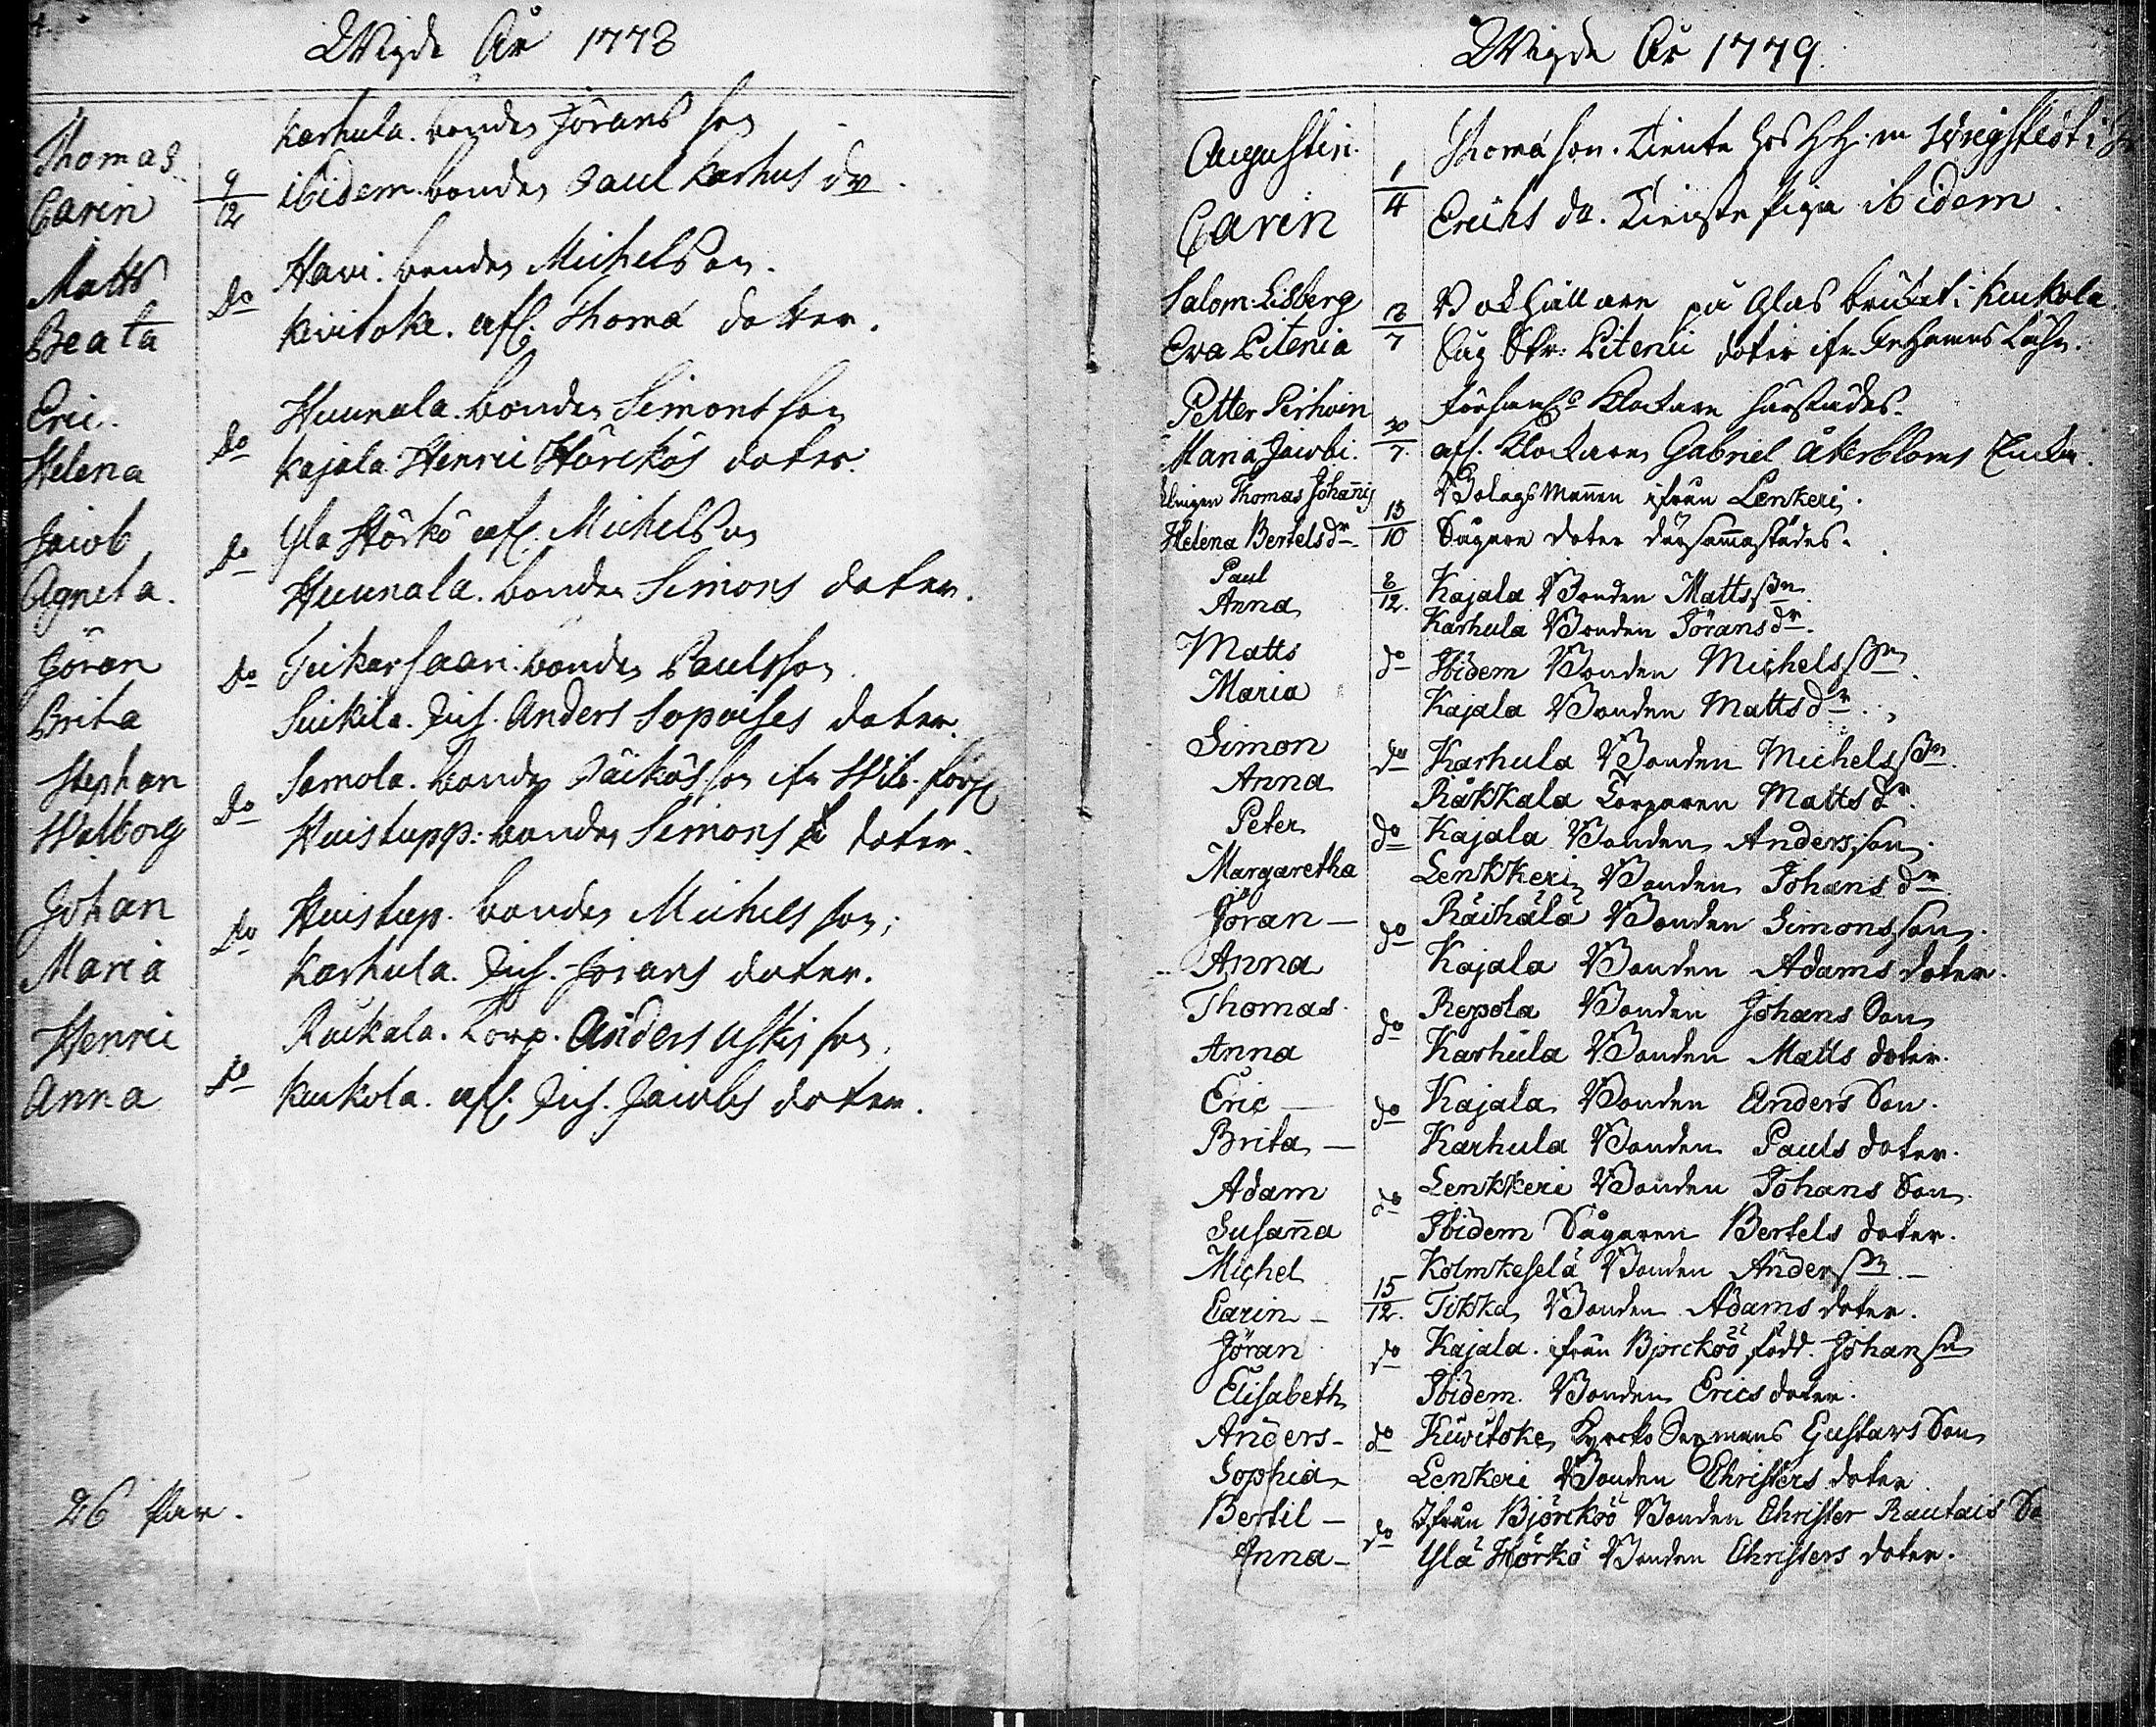 Wigde År 1778
Thomas Karhula. bonden Jörans son
Carin 9/12 ibidem bonden Paul Karhus dr.
Matts do Havi. bonden Michels son.
Beata Kivitoke. afl. Thoma dotter.
Eric. do Huunala. bonden Simons son
Helena Kajala Henric Hörckös doter.
Jacob do Yla Hörkö afl. Michels son
Agneta. Huunala. bonden Simons doter.
Jöran do Teikarsaari. bonden Paulsson.
Brita Suikila. Inh. Anders Sopoises doter.
Stephan do Samola. bonden Päikös son ifr. Wib. förs:
Walborg Huistupp. bonden Simons doter.
Johan do Huistup. bonden Michels son;
Maria Karhula. Inh. Jörans doter.
Henric Raikala. Torp. Anders Uskis son.
Anna do Kukola. afl. Inh. Jacobs doter.
26 Par.
Wigde År 1779.
Augustin. 1/4 Thomä son. Tiente hos
Carin Erichs dr. Tienste piga ibidem.
Salom. Lisberg 2/7 Bokhållare på Glas bruket i Kukola.
Eva Litenia Litenii doter ifr.
Petter Pirhoin 30/7 Klockare härstädes.
Maria Jacobi. afl. Klockaren Gabriel Åkerbloms Encka.
Thomas Johañis 13/10 Bolags Mannen ifrån Lenkeri.
Helena Bertelsdr. Sågare doter därsamastädes.
Paul 8/12. Kajala Bonden Mattssn.
Anna Karhula Bonden Jöransdr.
Matts do Ibidem Bonden Michelssn.
Maria Kajala Bonden Mattsdr.
Simon do Karhula Bonden Michelssn.
Anna Räkkala Torparen Mattsdr.
Peter do Kajala Bonden Anders son.
Margaretha Lenkkeri Bonden Johansdr.
Jöran – do Räihälä Bonden Simons son.
Anna Kajala Bonden Adams doter.
Thomas. do Repola Bonden Johans Son
Anna Karhula Bonden Matts doter.
Eric – do Kajala Bonden Anders Son.
Brita – Karhula Bonden Pauls doter.
Adam do Lenkkeri Bonden Johans Son
Susaña Ibidem Sågaren Bertels doter.
Michel 15/12. Kolmkeselä Bonden Anderssn. –
Carin – Tikka Bonden Adams doter.
Jöran do Kajala. ifrån Bjorcköö född. Johansn
Elisabeth Ibidem. Bonden Erics doter.
Anders – do Kuwitoke, Kyrcko Sexmans Gustavs Son
Sophia – Lenkeri Bonden Christers doter
Bertil – do Ifrån Björcköö Bonden Christer Rautais So
Anna – Ylä Hörkö Bonden Christers doter.